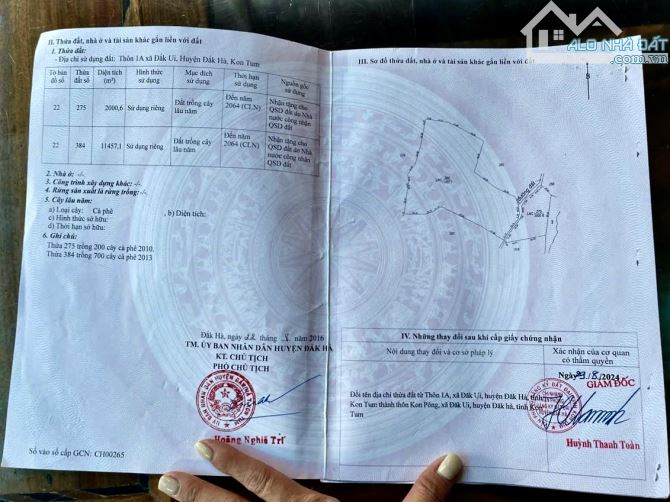 II. Thửa đất, nhà ở và tài sản khác gắn liền với đất
1. Thửa đất:
- Địa chỉ sử dụng đất: Thôn 1A xã Đăk Ui, Huyện Đăk Hà, Kon Tum
Tờ bản đồ số
Thửa đất số
Diện tích (m²)
Hình thức sử dụng
Mục đích sử dụng
Thời hạn sử dụng
Nguồn gốc sử dụng
22
275
2000,6
Sử dụng riêng
Đất trồng cây lâu năm
Đến năm 2064 (CLN)
Nhận tặng cho QSD đất do Nhà nước công nhận QSD đất
22
384
11457,1
Sử dụng riêng
Đất trồng cây lâu năm
Đến năm 2064 (CLN)
Nhận tặng cho QSD đất do Nhà nước công nhận QSD đất
2. Nhà ở: -/-
3. Công trình xây dựng khác: -/-
4. Rừng sản xuất là rừng trồng: -/-
5. Cây lâu năm:
a) Loại cây: Cà phê , b) Diện tích:
c) Hình thức sở hữu:
d) Thời hạn sở hữu:
6. Ghi chú:
Thửa 275 trồng 200 cây cà phê 2010.
Thửa 384 trồng 700 cây cà phê 2013
Đăk Hà, ngày 22 tháng năm 2016
TM. ỦY BAN NHÂN DÂN HUYỆN ĐĂK HÀ
KT. CHỦ TỊCH
PHÓ CHỦ TỊCH
Hoàng Nghĩa Trí
Số vào sổ cấp GCN: CH00265
III. Sơ đồ thửa đất, nhà ở và tài sản khác gắn liền với đất
ALO NHÀ ĐẤT
B
đường đất
IV. Những thay đổi sau khi cấp giấy chứng nhận
Nội dung thay đổi và cơ sở pháp lý
Xác nhận của cơ quan có thẩm quyền
Ngày 29/8/2024
GIÁM ĐỐC
Đổi tên địa chỉ thửa đất từ Thôn 1A, xã Đăk Ui, huyện Đăk Hà, tỉnh
Kon Tum thành thôn Kon Pông, xã Đăk Ui, huyện Đăk hà, tỉnh Kon
Tum
Huỳnh Thanh Toàn